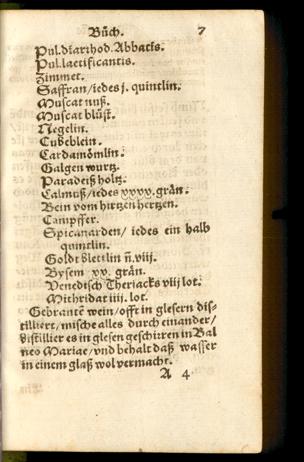 Büch. 7
Pul.diarihod.Abbatis.
Pul.laetificantis.
Zimmet.
Saffran/iedes j. quintlin.
Muscat nuß.
Muscat blůst.
Negelin.
Cubeblein.
Cardamömlin.
Galgen wurtz.
Paradeiß holtz.
Calmuß/iedes xxxx.grän.
Bein vom hirtzenhertzen.
Campffer.
Spicanarden/ iedes ein halb
quintlin.
Goldt blettlin ñ.viij.
Bysem xx. grän.
Venedisch Theriacks viij lot.
Mithridat iiij. lot.
Gebrantē wein/offt in glesern dis-
tilliert/mische alles durch einander/
distillier es in glesen geschirren in Bal
neo Mariae/vnd behalt daß wasser
in einem glaß wol vermacht.
A 4